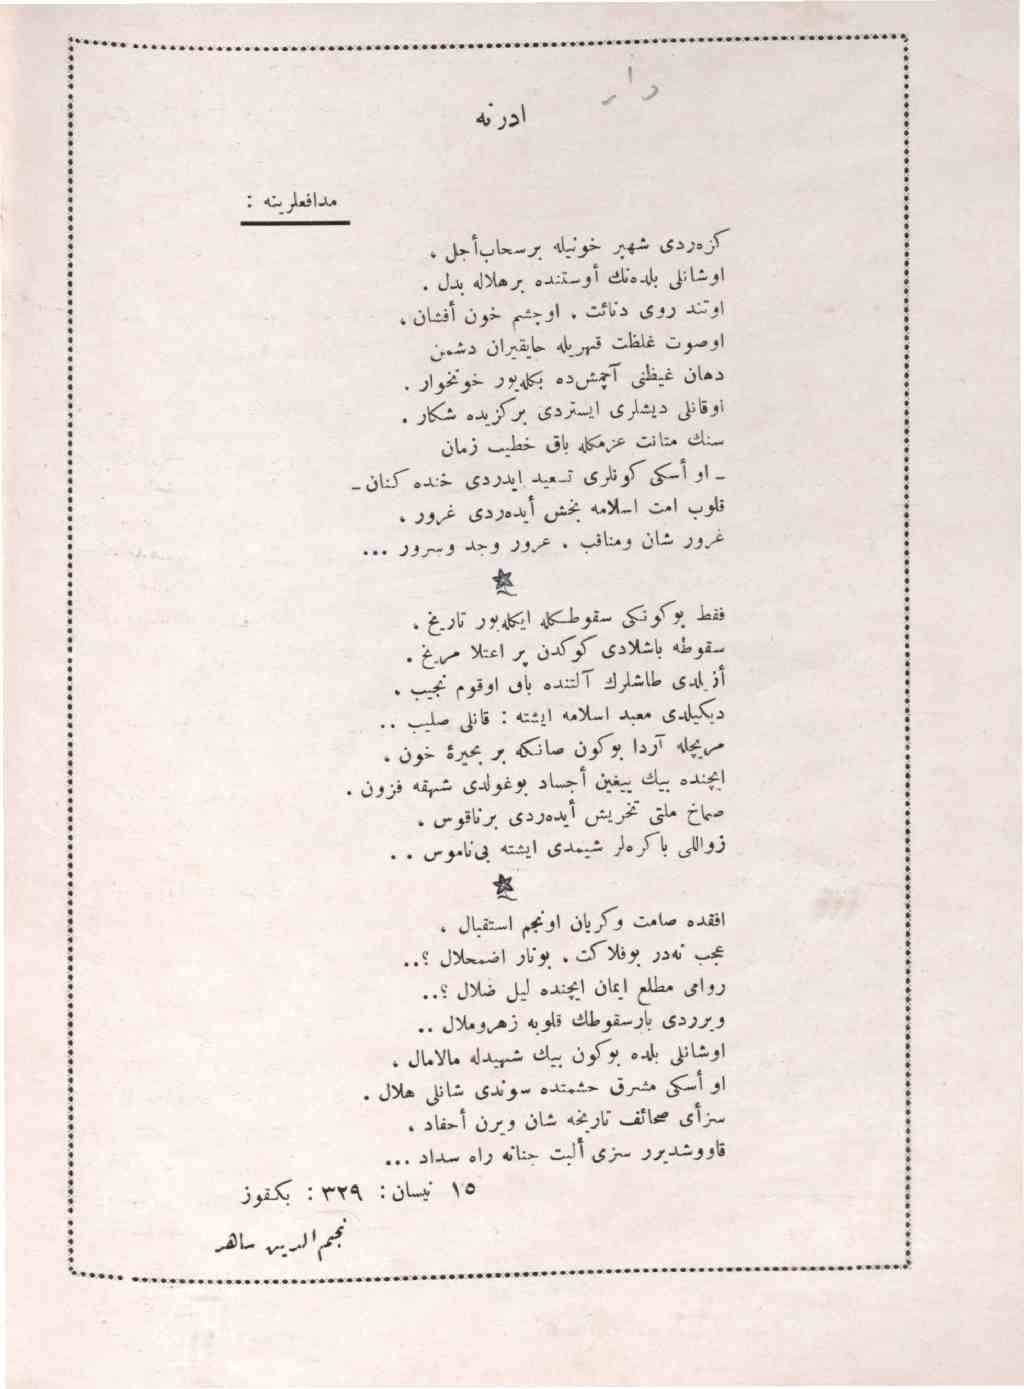 ادرنه
مدافعلرینه :
كزه‌ردی شهپر خونیله برسحاب‌أجل ،
اوشانلی بلده‌نك أوستنده برهلاله بدل .
اوتند روی دنائت ، اوچشم خون أفشان ،
اوصوت غلظت قهریله حایقیران دشمن
دهان غیظنی آچمش‌ده بكله‌یور خونخوار .
اوقانلی دیشلری ایستردی برگزیده شكار .
سنك متانت عزمكله باق خطیب زمان
ـ او أسكی كونلری تسعید ایدردی خنده كنان ـ
قلوب امت اسلامه بخش أیده‌ردی غرور ،
غرور شان ومناقب ، غرور وجد وسرور ...
فقط بوكونكی سقوطكله ایكله‌یور تاریخ .
سقوطه باشلادی كوكدن پر اعتلا مریخ .
أزیلدی طاشلرك آلتنده باق اوقوم نجیب ،
دیكیلدی معبد اسلامه ایشته : قانلی صلیب ..
مریچله آردا بوكون صانكه بر بحیرۀ خون ،
ایچنده بیك ییغین أجساد بوغولدی شهقه فزون .
صماخ ملتی تخریش أیده‌ردی برناقوس ،
زواللی باكره‌لر شیمدی ایشته بی‌ناموس . .
افقده صامت وكریان اونجم استقبال ،
عجب نه‌در بوفلاكت ، بونار اضمحلال ؟..
روامی مطلع ایمان ایچنده لیل ضلال ؟..
ویرردی بارسقوطك قلوبه زهروملال ..
اوشانلی بلده بوكون بیك شهیدله مالامال ،
او أسكی مشرق حشمتده سوندی شانلی هلال .
سزأی صحائف تاریخه شان ویرن أحفاد ،
قاووشدیرر سزی ألبت جنانه راه سداد ...
١٥ نیسان : ٣٢٩ : بكقوز
نجم الدین ساهر